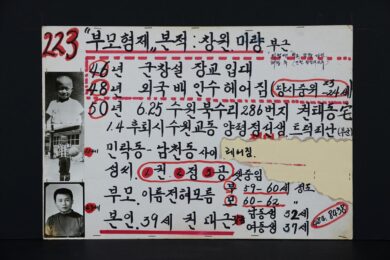 223 "부모형제" 본적: 창원. 미량 부근
46년 군창설 장교 입대
48년 외국 배 안수 헤어짐 당시순위 23-24세
50년 6.25 수원 북수리 286번지 권태동宅
1.4 후퇴시 수원교동 양정점직생 트럭피난
미락동-남천동 사이 헤어짐.
성씨. ①권 ②정 ③공 셋중임
부모. 이름전혀모름 부 59-60세 정도
모 60-62
본인. 39세 권태근 남동생 32세
여동생 37세